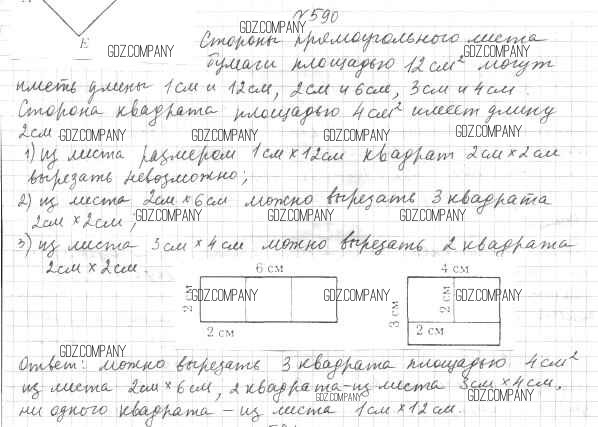 E
№590
GDZ.COMPANY
GDZ.COMPANY GDZ.COMPANY GDZ.COMPANY
Стороны прямоугольного листа
бумаги площадью 12 см² могут
иметь длины 1см и 12см, 2см и 6см, 3см и 4см.
Сторона квадрата площадью 4см² имеет длину
2см. GDZ.COMPANY GDZ.COMPANY GDZ.COMPANY GDZ.COMPANY
1) из листа размером 1см × 12см квадрат 2см × 2см
вырезать невозможно;
2) из листа 2см × 6см можно вырезать 3 квадрата
2см × 2см; GDZ.COMPANY GDZ.COMPANY GDZ.COMPANY
3) из листа 3см × 4см можно вырезать 2 квадрата
2см × 2см.
6 см 4 см
GDZ.COMPANY 2 см GDZ.COMPANY GDZ.COMPANY 3 см 2 см GDZ.COMPANY
2 см 2 см
GDZ.COMPANY
Ответ: можно вырезать 3 квадрата площадью 4см²
GDZ.COMPANY
из листа 2см × 6см, 2 квадрата - из листа 3см × 4см,
GDZ.COMPANY GDZ.COMPANY
ни одного квадрата - из листа 1см × 12см.